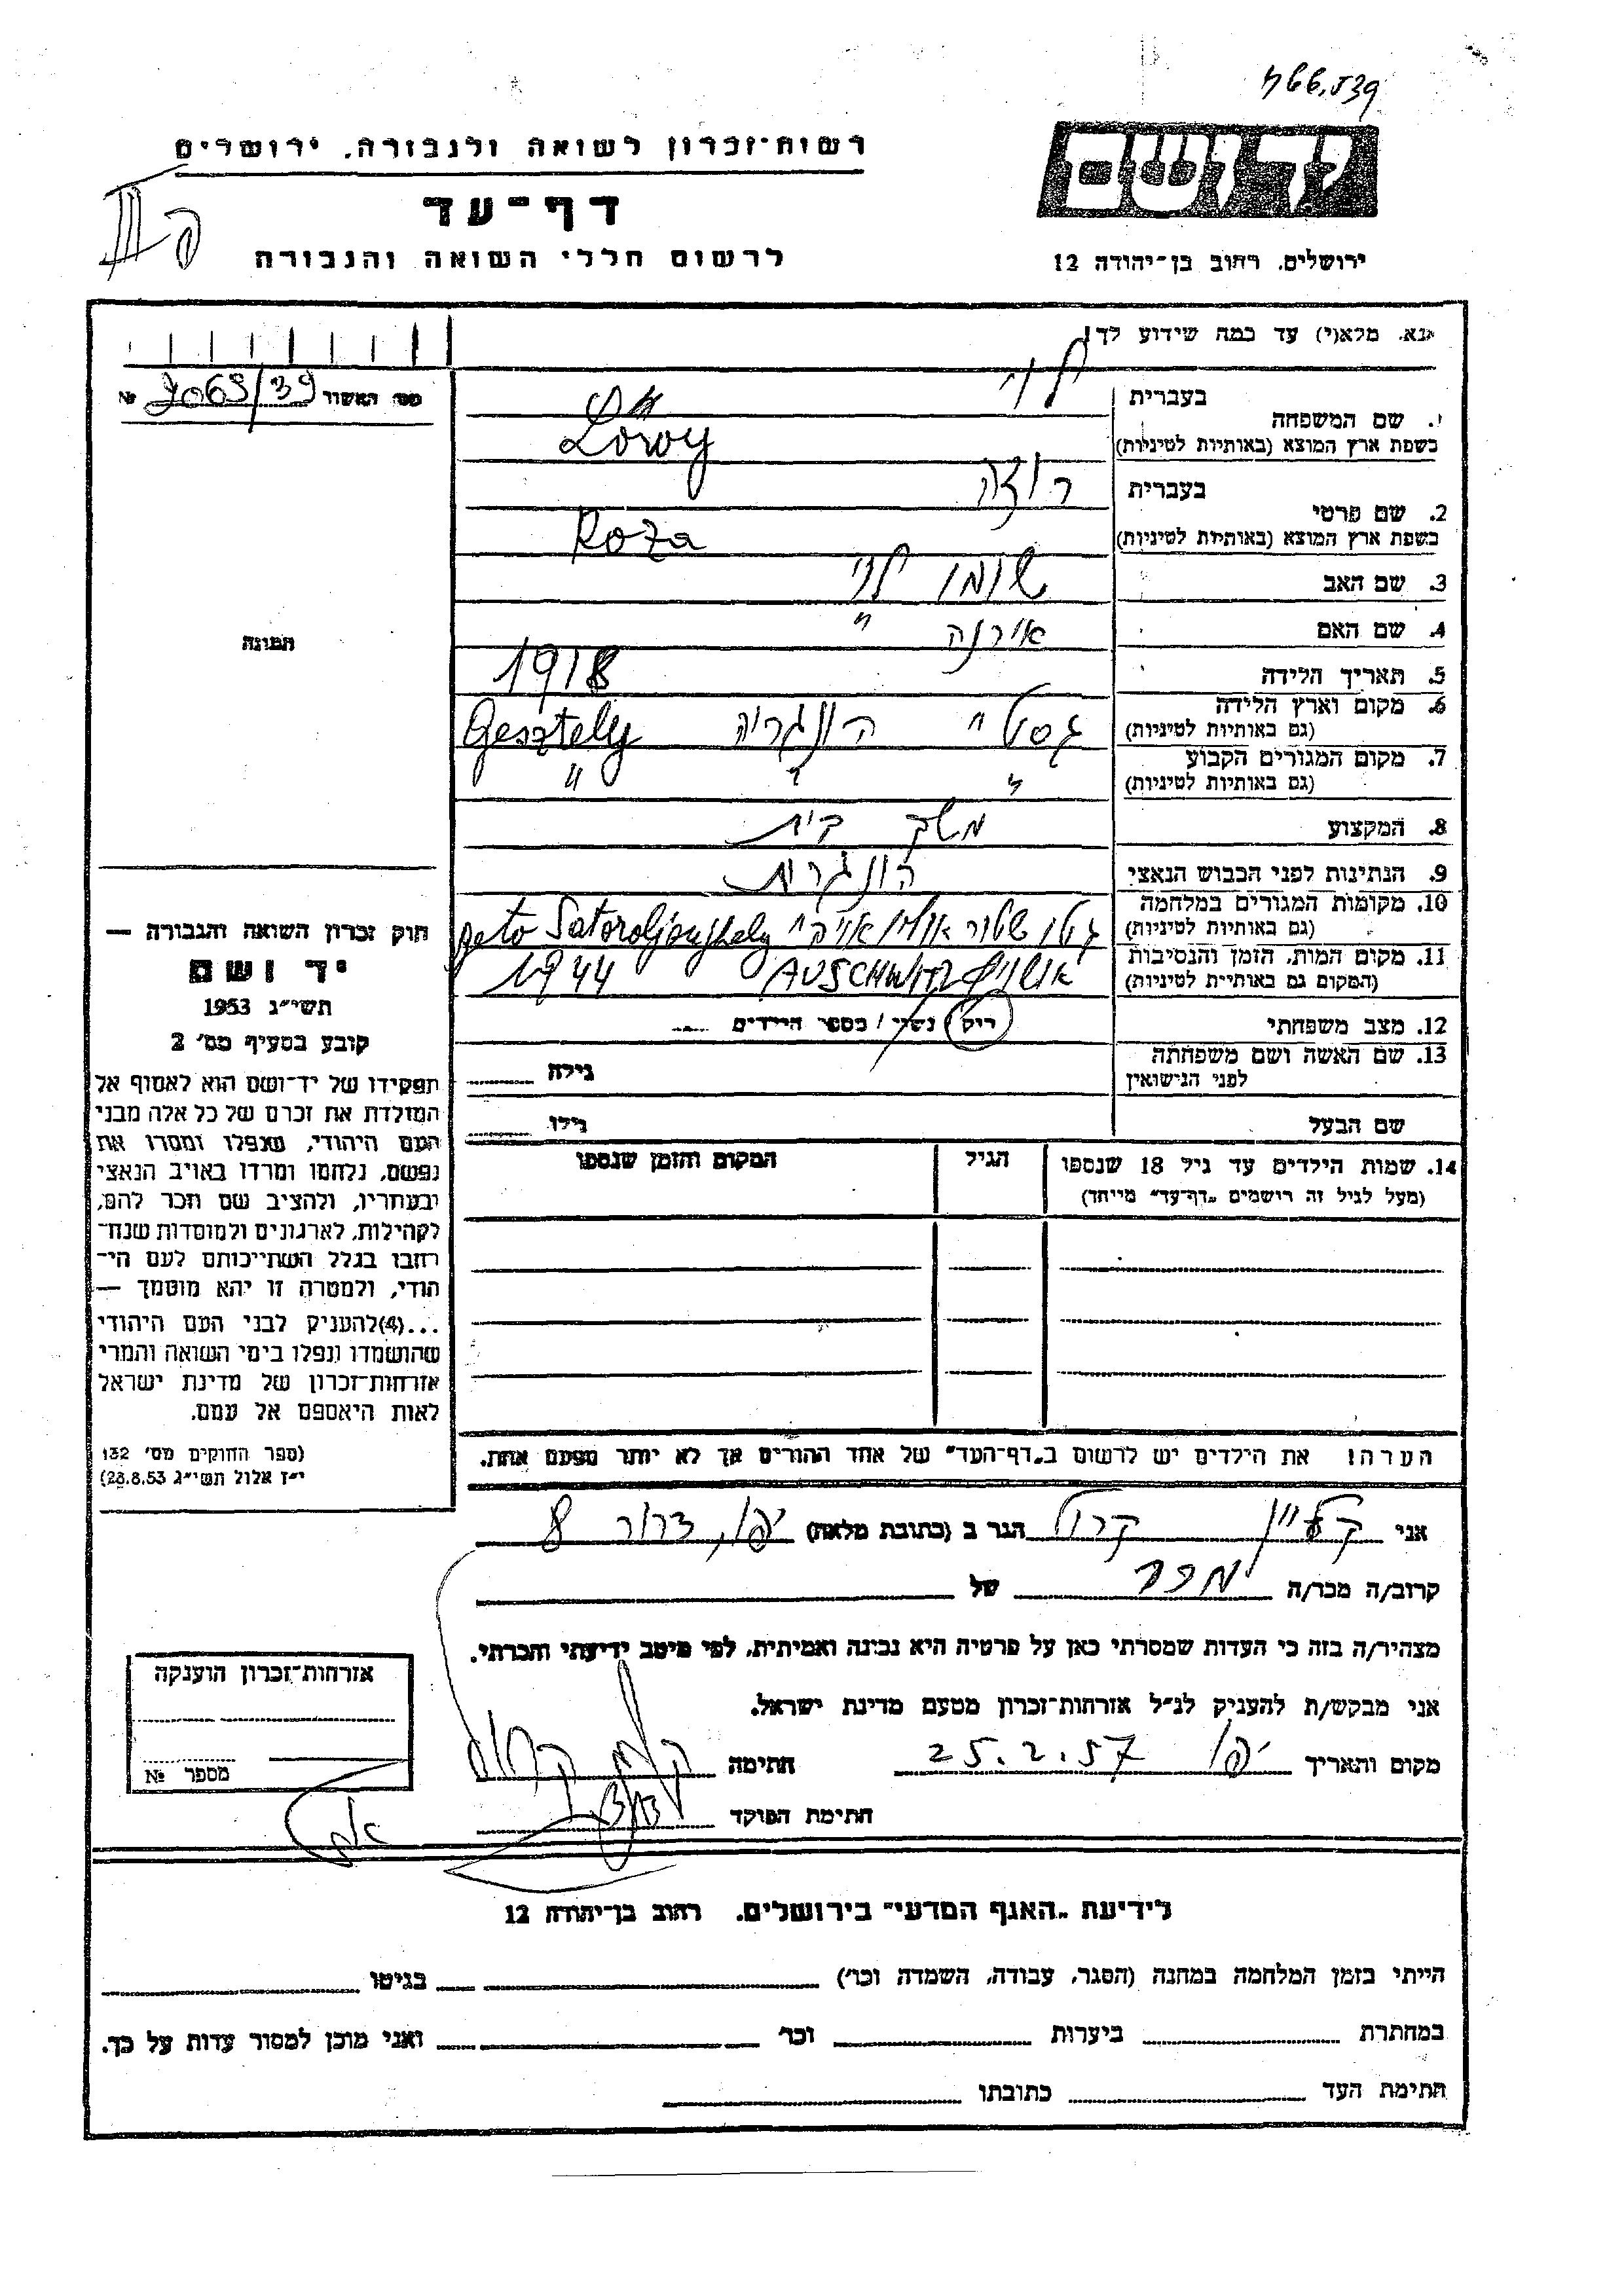 466,539
רשות־זכרון לשואה ולגבורה, ירושלים
דף־עד
לרשום חללי השואה והגבורה
ידושם
ירושלים, רחוב בן־יהודה 12
נא. מלא(י) עד כמה שידוע לך!
מס' האשור 2069/39 №
1. שם המשפחה
בעברית לוי
בשפת ארץ המוצא (באותיות לטיניות) Löwy
2. שם פרטי
בעברית רוזה
בשפת ארץ המוצא (באותיות לטיניות) Roza
3. שם האב שומו לוי
4. שם האם אירנה "
5. תאריך הלידה 1918
6. מקום וארץ הלידה גסטלי הונגריה Gesztely
(גם באותיות לטיניות)
7. מקום המגורים הקבוע " " "
(גם באותיות לטיניות)
8. המקצוע משק בית
9. הנתינות לפני הכבוש הנאצי הונגרית
10. מקומות המגורים במלחמה גטו geto Satoroljaujhely
(גם באותיות לטיניות)
11. מקום המות, הזמן והנסיבות אושויץ AUSCHWITZ 1944
(המקום גם באותיות לטיניות)
12. מצב משפחתי רוק / נשוי / מספר הילדים
13. שם האשה ושם משפחתה
לפני הנישואין גילה
שם הבעל גילו
14. שמות הילדים עד גיל 18 שנספו הגיל המקום והזמן שנספו
(מעל לגיל זה רושמים "דף־עד" מייחד)
הערה: את הילדים יש לרשום ב"דף־העד" של אחד ההורים אך לא יותר מפעם אחת.
תמונה
חוק זכרון השואה והגבורה —
יד ושם
תשי"ג 1953
קובע בסעיף מס' 2
תפקידו של יד־ושם הוא לאסוף אל
המולדת את זכרם של כל אלה מבני
העם היהודי, שנפלו ומסרו את
נפשם, נלחמו ומרדו באויב הנאצי
ובעוזריו, ולהציב שם וזכר להם,
לקהילות, לארגונים ולמוסדות שנח־
רבו בגלל השתייכותם לעם הי־
הודי, ולמטרה זו יהא מוסמך —
...(4)להעניק לבני העם היהודי
שהושמדו ונפלו בימי השואה והמרי
אזרחות־זכרון של מדינת ישראל
לאות היאספם אל עמם.
(ספר החוקים מס' 132
י"ז אלול תשי"ג 28.8.53)
אני קליין קרול הגר ב (כתובת מלאה) יפו, דרור 8
קרוב/ה מכר/ה מכר של
מצהיר/ה בזה כי העדות שמסרתי כאן על פרטיה היא נכונה ואמיתית, לפי מיטב ידיעתי והכרתי.
אני מבקש/ת להעניק לנ"ל אזרחות־זכרון מטעם מדינת ישראל.
מקום ותאריך יפו 25.2.57 חתימה קליין קרול
חתימת הפוקד
אזרחות־זכרון הוענקה
מספר №
לידיעת "האגף המדעי" בירושלים, רחוב בן־יהודה 12
הייתי בזמן המלחמה במחנה (הסגר, עבודה, השמדה וכו') בגיטו
במחתרת ביערות וכו' ואני מוכן למסור עדות על כך.
חתימת העד כתובתו